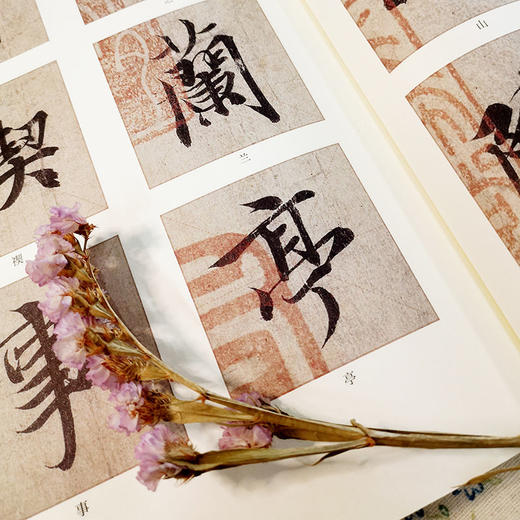 山
蘭
兰
亭
亭
禊
事
事